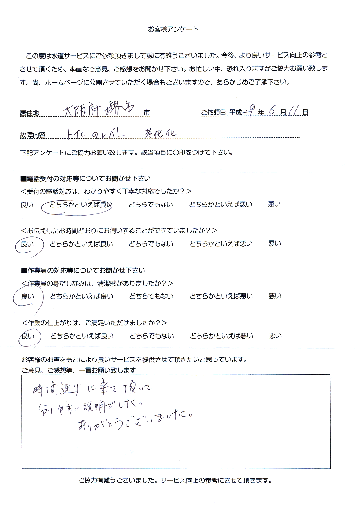 お客様アンケート
この度は水道サービスにご依頼頂きまして誠に有難うございました。今後、より良いサービス向上の参考と
させて頂くため、率直なご意見、ご感想をお聞かせ下さい。お忙しい中、恐れ入りますがご協力お願い致しま
す。尚、ホームページに公開させていただく場合もございますので、あらかじめご了承下さい。
大阪府 市 平成 年 6 月 11 日
トイレの
下記アンケートにご協力お願い致します。該当項目に○印をつけて下さい。
■電話受付の対応等についてお聞かせ下さい
＜受付の電話対応は、わかりやすく丁寧な対応でしたか？＞
良い どちらかといえば良い どちらでもない どちらかといえば悪い 悪い
＜お伝えしたお時間どおりにお伺いすることができていましたか？＞
良い どちらかといえば良い どちらでもない どちらかといえば悪い 悪い
■作業員の対応等についてお聞かせ下さい
＜作業員の身だしなみは、清潔感がありましたか？＞
良い どちらかといえば良い どちらでもない どちらかといえば悪い 悪い
＜作業の仕上がりは、ご満足いただけましたか？＞
良い どちらかといえば良い どちらでもない どちらかといえば悪い 悪い
お客様のお声をもとにより良いサービスを提供させて頂きたいと思っています。
ご意見、ご感想等、一言お願い致します
時間通りに来て頂いて
説明でした。
ありがとうございました。
ご協力有難うございました。サービス向上の参考にさせて頂きます。